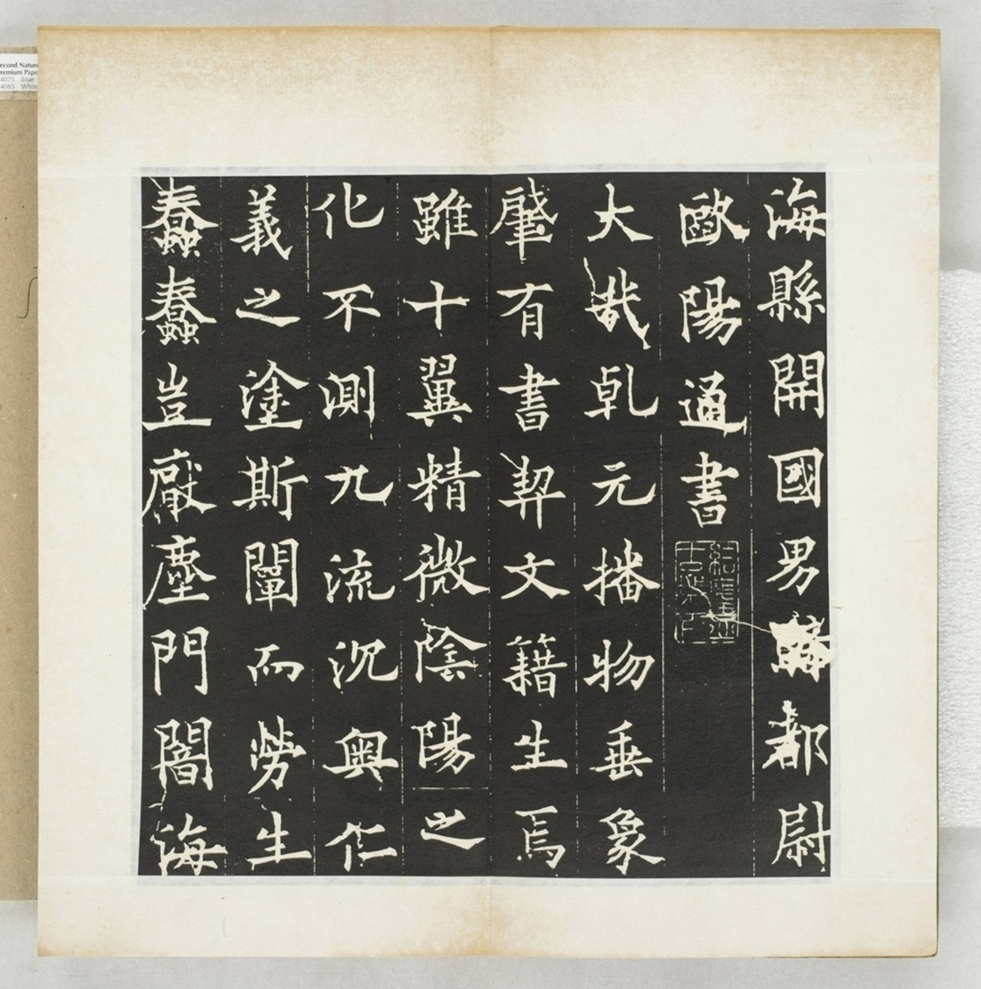 海縣開國男騎都尉
歐陽通書
大哉乹元播物垂象
肇有書契文籍生焉
雖十翼精微陰陽之
化不測九流沉奥仁
義之塗斯闡而勞生
蠢蠢豈厭塵門闇海
econd Nature
remium Pape